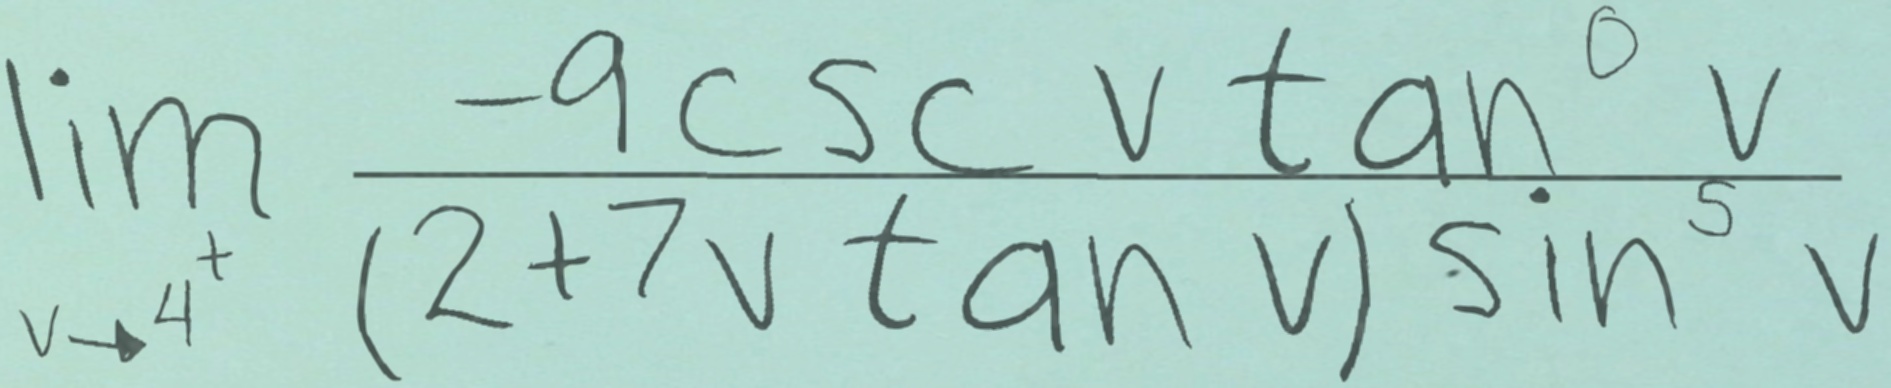 \lim_{v \to 4^+} \frac{-9 \csc v \tan^0 v}{(2+7v \tan v) \sin^5 v}